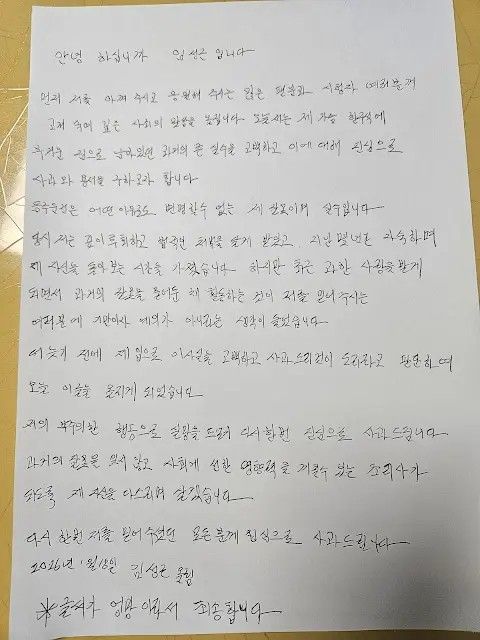 안녕 하십니까 임성근 입니다
먼저 저를 아껴 주시고 응원해 주시는 많은 팬분과 시청자 여러분께
고개 숙여 깊은 사죄의 말씀을 올립니다 오늘 저는 제 가슴 한구석에
무거운 짐으로 남아있던 과거의 큰 실수를 고백하고 이에 대해 진심으로
사과와 용서를 구하고자 합니다
음주운전은 어떤 이유로도 변명할수 없는 제 잘못이며 실수입니다
당시 저는 깊이 후회하고 법적인 처벌을 달게 받았고, 지난 몇년간 자숙하며
제 자신을 돌아보는 시간을 가졌습니다 하지만 최근 과한 사랑을 받게
되면서 과거의 잘못을 묻어둔 채 활동하는 것이 저를 믿어주시는
여러분께 기만이자 예의가 아니라는 생각이 들었습니다
더 늦기 전에 제 입으로 이사실을 고백하고 사과드리는것이 도리라고 판단하여
오늘 이글을 올리게 되었습니다
저의 부주의한 행동으로 실망을 드려 다시한번 진심으로 사과드립니다
과거의 잘못을 잊지 않고 사회에 선한 영향력을 끼칠수 있는 조리사가
되도록 제 자신을 다스리며 살겠습니다
다시 한번 저를 믿어 주셨던 모든 분께 진심으로 사과드립니다
2026년 1월18일 임성근 올림
※글씨가 엉망 이라서 죄송합니다